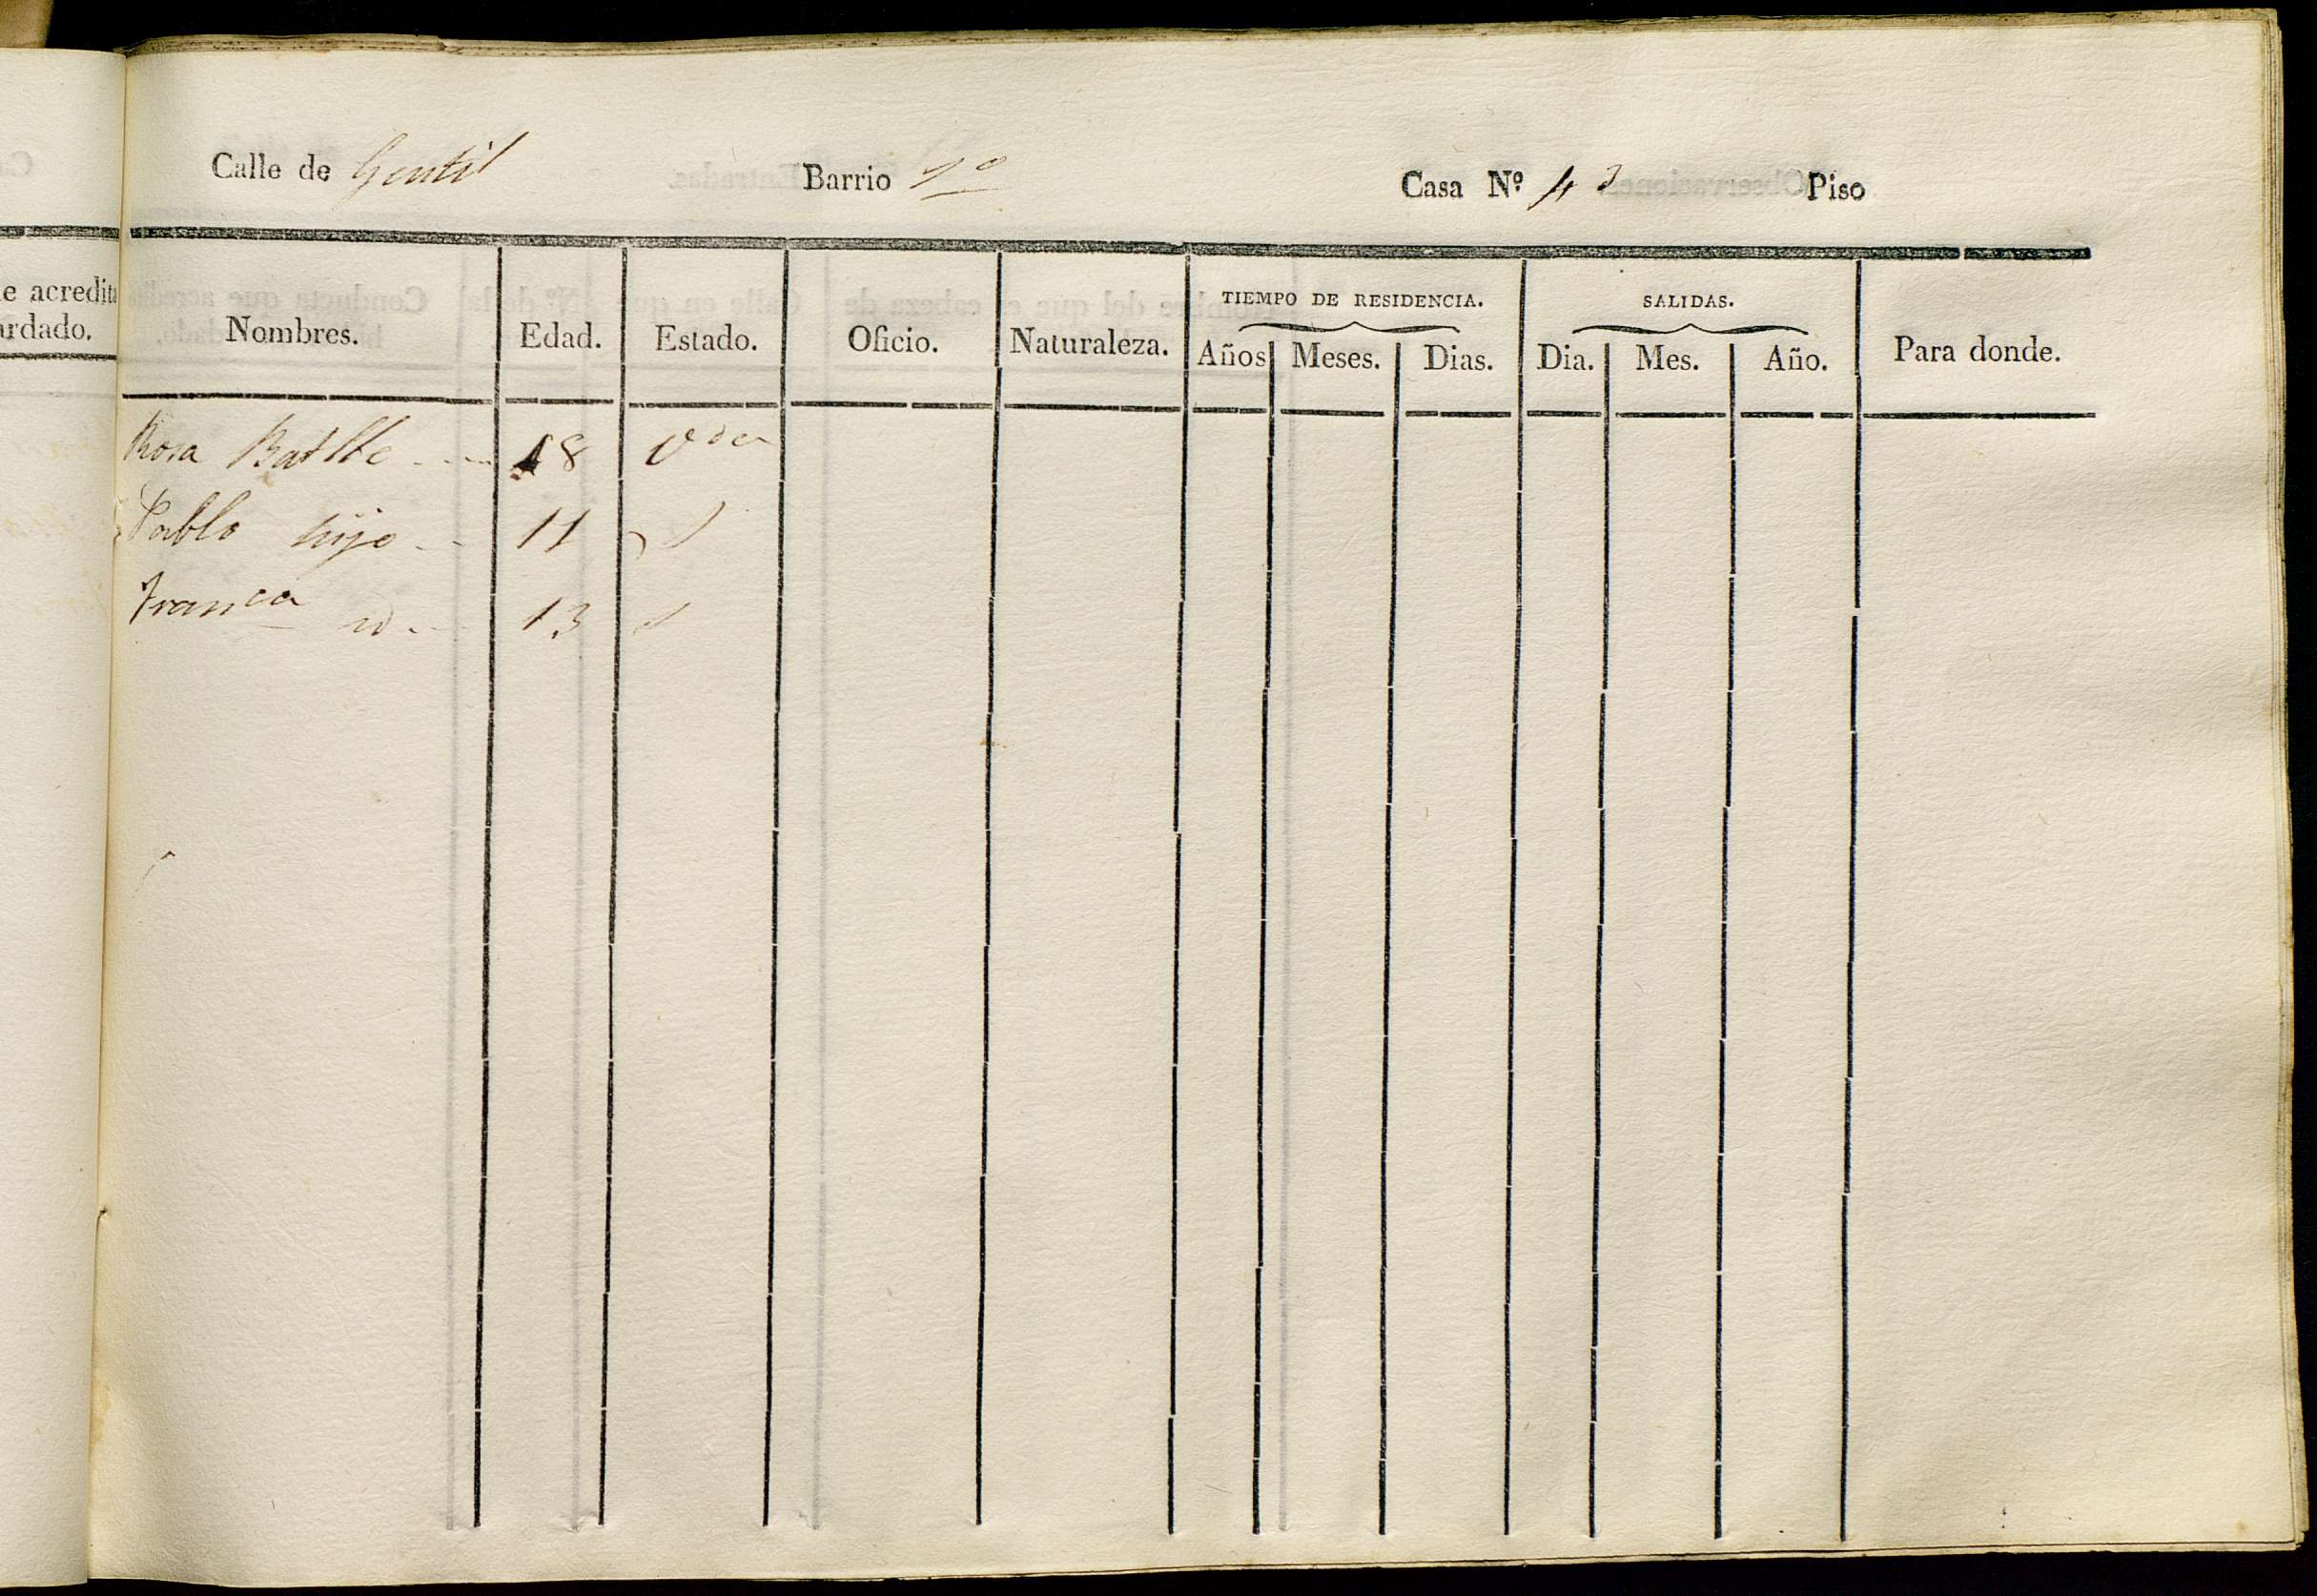 Calle de Gentil Barrio 1º Casa Nº 43 Piso
e acredita
ardado.
TIEMPO DE RESIDENCIA. SALIDAS.
Nombres. Edad. Estado. Oficio. Naturaleza. Años Meses. Dias. Dia. Mes. Año. Para donde.
Rosa Batlle 48 Vda
Pablo hijo 11 S
Franca id 13 S